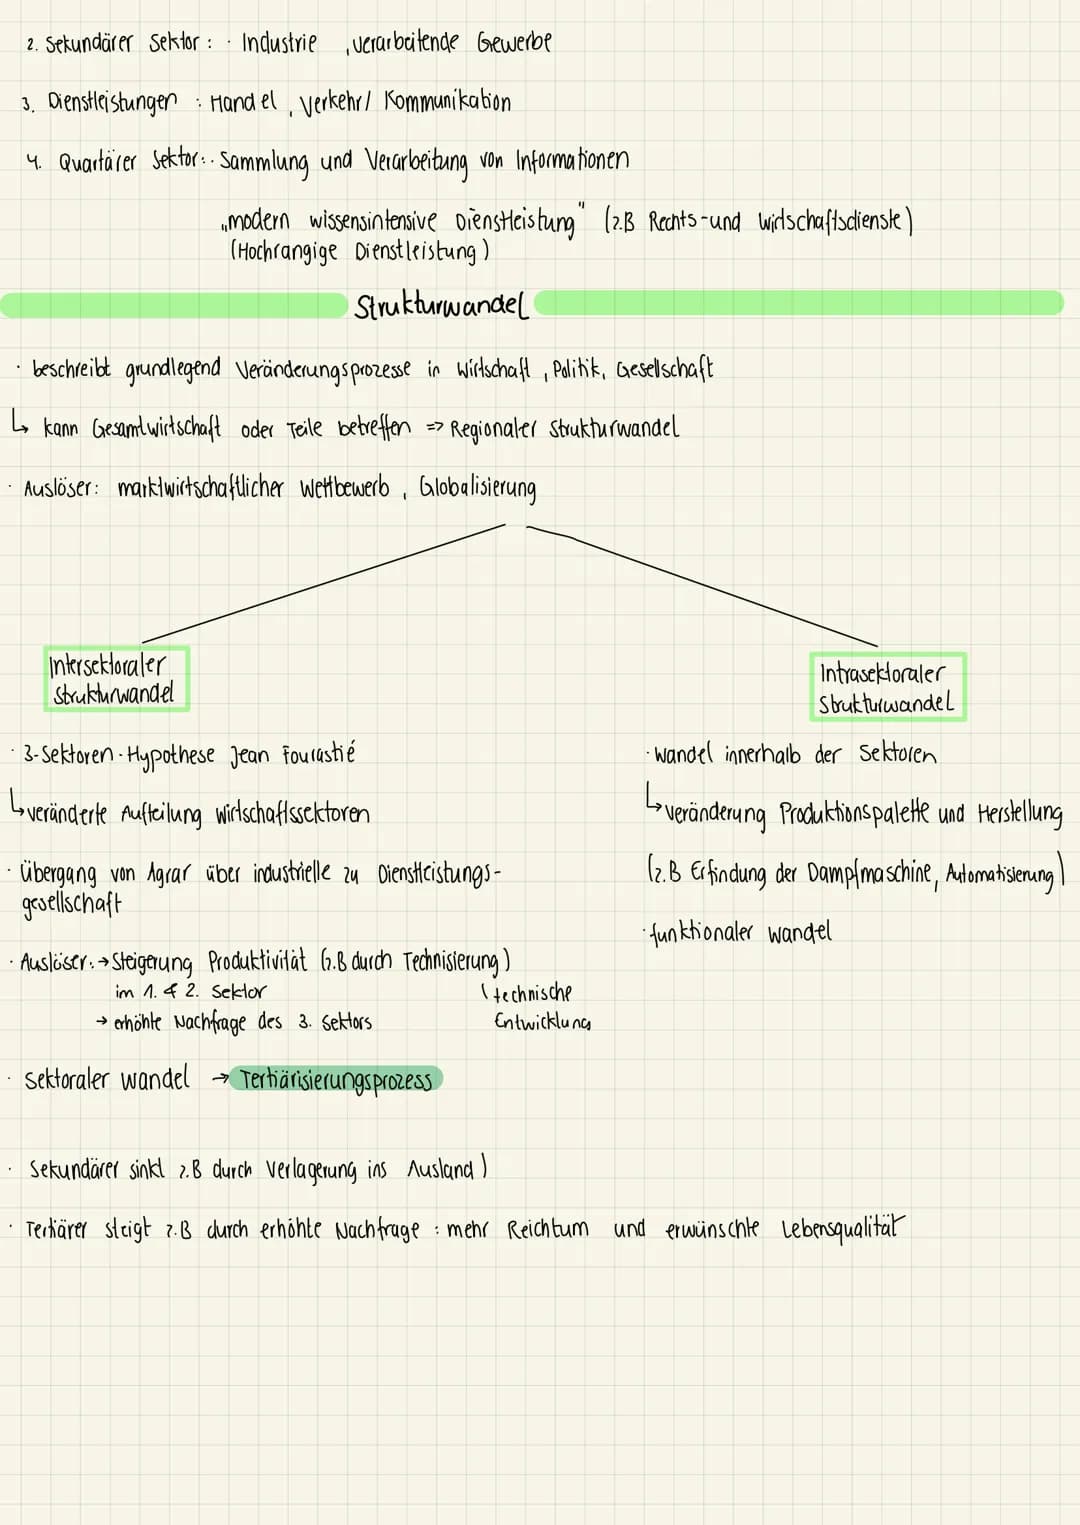 2. Sekundärer Sektor : · Industrie , verarbeitende Gewerbe
3. Dienstleistungen : Handel , Verkehr / Kommunikation
4. Quartärer Sektor : · Sammlung und Verarbeitung von Informationen
„modern wissensintensive Dienstleistung" (z.B Rechts-und wirtschaftsdienste)
(Hochrangige Dienstleistung)
Strukturwandel
· beschreibt grundlegend Veränderungsprozesse in Wirtschaft , Politik, Gesellschaft
↳ kann Gesamtwirtschaft oder Teile betreffen => Regionaler Strukturwandel
· Auslöser: marktwirtschaftlicher Wettbewerb , Globalisierung
Intersektoraler
Strukturwandel
· 3-Sektoren-Hypothese Jean Fourastié
↳ veränderte Aufteilung wirtschaftssektoren
· Übergang von Agrar über industrielle zu Dienstleistungs-
gesellschaft
· Auslöser: → Steigerung Produktivität (z.B durch Technisierung)
im 1. & 2. Sektor
technische
Entwicklung
→ erhöhte Nachfrage des 3. Sektors
· Sektoraler wandel → Tertiärisierungsprozess
Intrasektoraler
Strukturwandel
· wandel innerhalb der Sektoren
↳ veränderung Produktionspalette und Herstellung
(z.B Erfindung der Dampfmaschine, Automatisierung)
· funktionaler wandel
· Sekundärer sinkt z.B durch Verlagerung ins Ausland)
· Tertiärer steigt z.B durch erhöhte Nachfrage : mehr Reichtum und erwünschte Lebensqualität